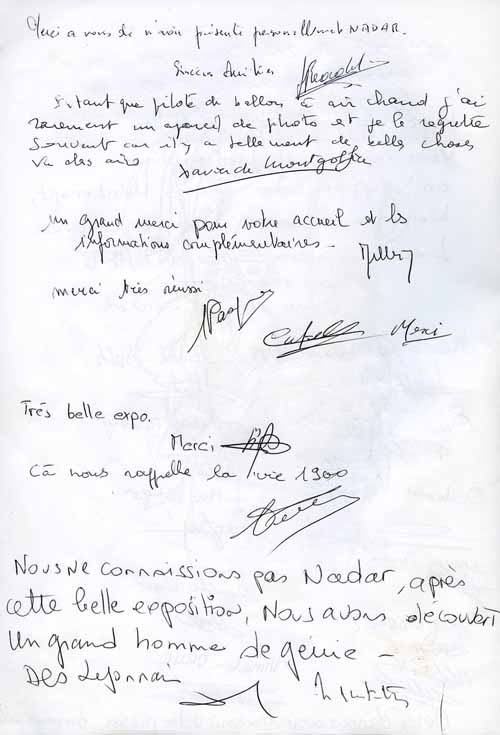 Merci a vous de m'avoir présenté personnellement NADAR.
Sincères Amitiés
Estant que pilote de ballon à air chaud j'ai
rarement un apareil de photo et je le regrette
souvent car il y a tellement de belles choses
vu des airs
Xavier de Montgolfier
un grand merci pour votre accueil et les
informations complémentaires -
merci très réussi
Merci
Très belle expo.
Merci
Cà nous rappelle la vie 1900
Nous ne connaissions pas Nadar, après
cette belle exposition, Nous avons découvert
Un grand homme de génie -
Des Lyonnais